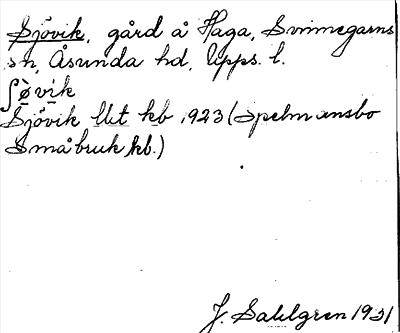 Sjövik, gård å Haga, Svinnegarns
sn, Åsunda hd, Upps. l.
ʃø̀vi'k
Sjövik llt kb 1923 (Spelmansbo
Småbruk, kb.)
J. Sahlgren 1931